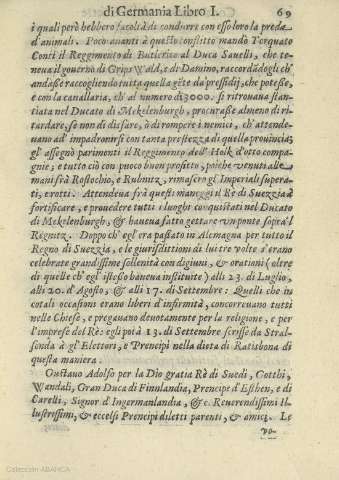 di Germania Libro I. 69
i quali però hebbero facoltà di condurre con esso loro la preda
d'animali. Poco auanti à questo conflitto mandò Torquato
Conti il Reggimento di Butlerico al Duca Sauelli, che te-
neua il gouerno di Gripswald, e di Damino, raccordādogli ch'
andasse raccogliendo tutta quella gēte da pressidij, che potesse,
e con la cauallaria, ch' al numero di 3000. si ritrouaua stan-
tiata nel Ducato di Mekelenburgh, procurasse almeno di ri-
tardare, se non di disfare, ò di rompere i nemici, ch' attende-
uano ad impadronirsi con tanta prestezza di quella prouincia;
gl' assegnò parimenti il Reggimento dell' Holk d'otto compa-
gnie; e tutto ciò con puoco buon profitto, poiche venuti alle
mani frà Rostochio, e Rubnitz, rimasero gl' Imperiali supera-
ti, e rotti. Attendeua frà questi maneggi il Rè di Suezzia à
fortificare, e prouedere tutti i luoghi conquistati nel Ducato
di Mekelenburgh, & haueua fatto gettare vn ponte sopra'l
Regnitz. Doppo ch' egl' era passato in Alemagna per tutto il
Regno di Suezzia, e le giurisdittioni di lui tre volte s'erano
celebrate grandissime sollenità con digiuni, & orationi (oltre
di quelle ch' egl' istesso haueua instituite) alli 23. di Luglio,
alli 20. d'Agosto, & alli 17. di Settembre: Quelli che in
cotali occasioni erano liberi d'infirmità, concorreuano tutti
nelle Chiese, e pregauano deuotamente per la religione, e per
l'imprese del Rè: egli poi à 13. di Settembre scrisse da Stral-
sonda à gl' Elettori, e Prencipi nella dieta di Ratisbona di
questa maniera.
Gustauo Adolfo per la Dio gratia Rè di Suedi, Gotthi,
Wandali, Gran Duca di Finnlandia, Prencipe d'Esthen, e di
Carelli, Signor d'Ingermanlandia, & c. Reuerendissimi Il-
lustrissimi, & eccelsi Prencipi diletti parenti, & amici. Le
vo-
Colección ABANCA